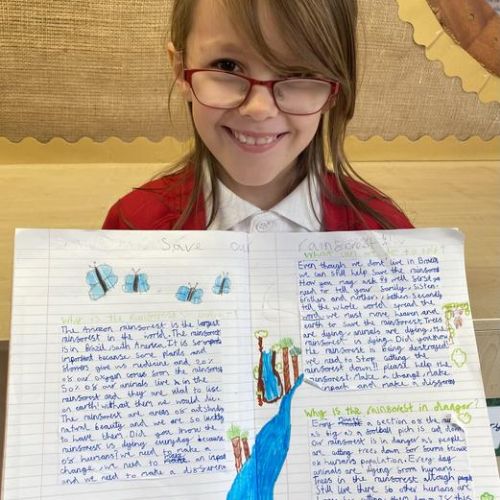 Save our rainforest
What is the rainforest
The Amazon rainforest is the largest
rainforest in the world. The rainforest
is in Brazil, South America. It is so import
important because some plants and
flowers give us medicine and 20%
of our oxygen comes from the rainforest
50% of our animals live in the
rainforest and they are vital to life
on earth! without them we would die.
The rainforest are areas of astounding
natural beauty and we are so lucky
to have them. Did you know the
rainforest is dying everyday because
of humans! we need to make a
change, we need to make an impact
and we need to make a difference
What can to help?
Even though we don't live in Brazil
we can still help save the rainforest
How you may ask is well first you
need to tell your family, sisters,
brothers and mothers, fathers secondly
tell the whole world. around the
world we must move heaven and
earth to save the rainforest. Trees
are dying, animals are dying, the
rainforest is dying. Did you know
the rainforest is being destroyed
we need to stop cutting the
rainforest down!! please help the
rainforest. Make a change, make
impact and make a difference
Why is the rainforest in danger?
Every a section of the
as big as a football pitch is cut down
Our rainforest is in danger as people
are cutting trees down for farms because
of humans population. Every day
animals are dying from humans.
Trees in the rainforest although people
still live there so other humans are